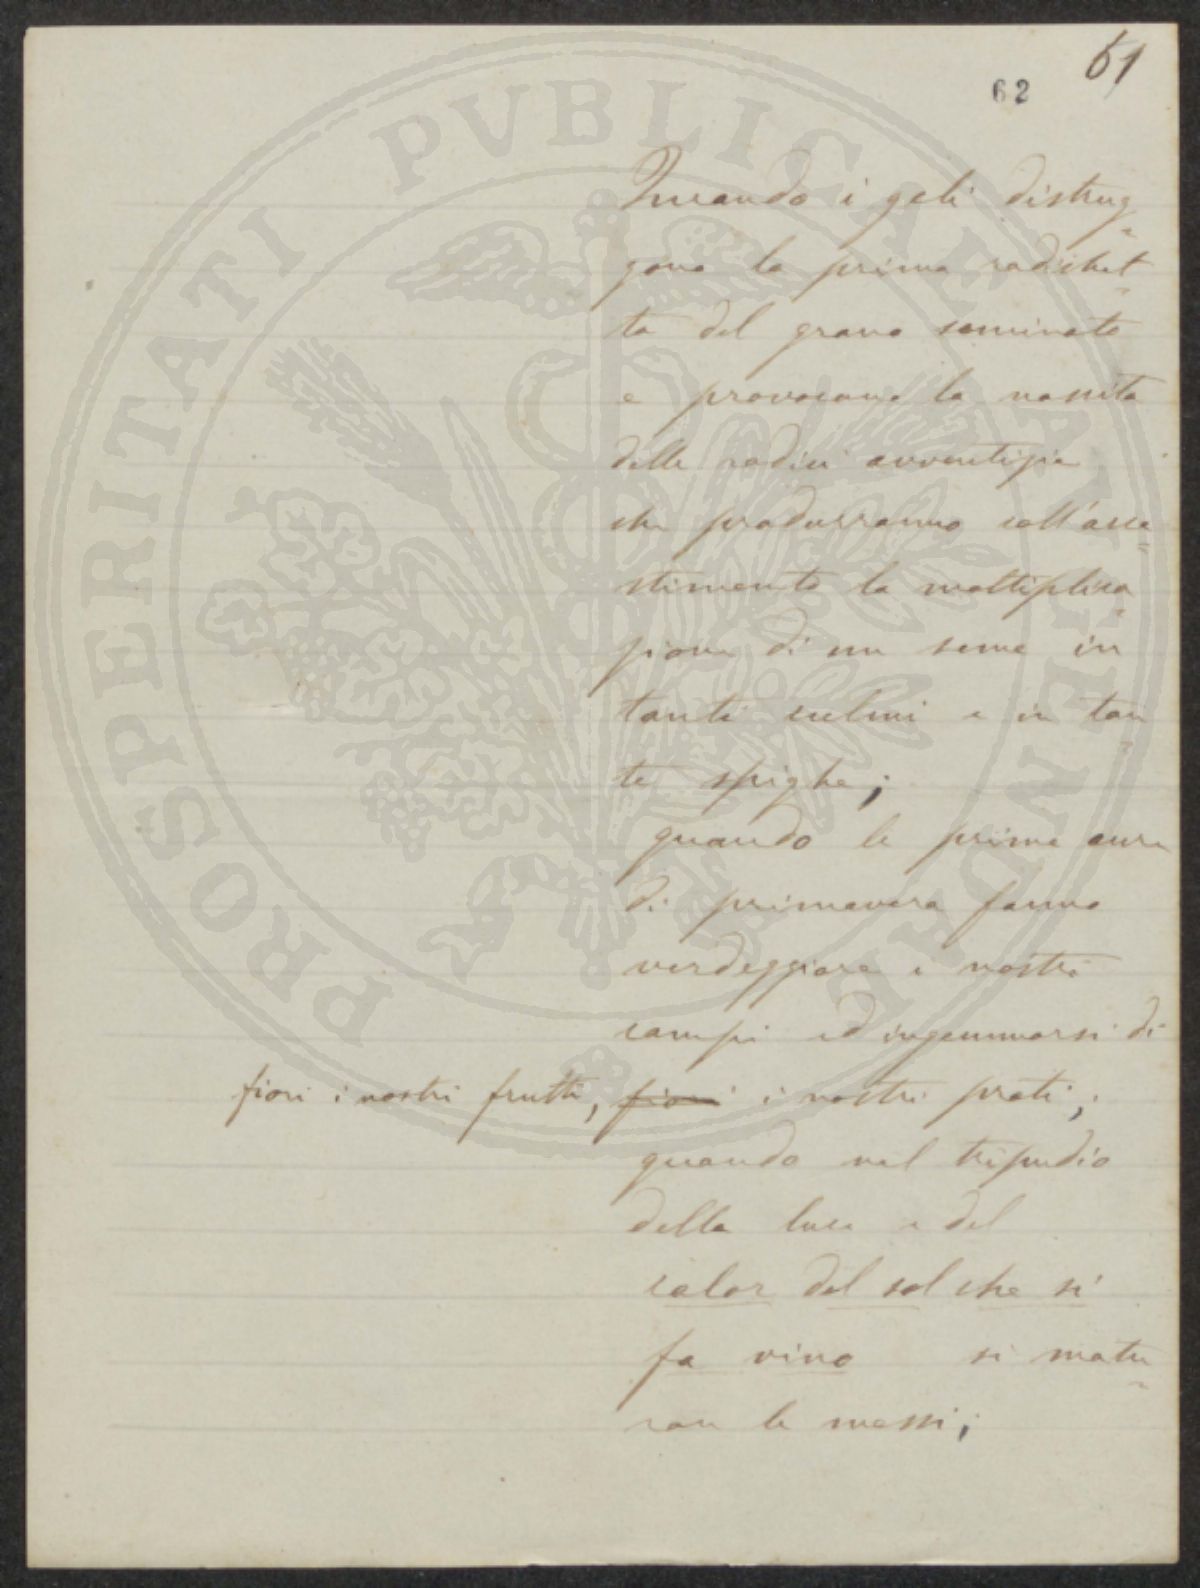 61
62
PROSPERITATI PVBLICAE AVGENDAE
Quando i geli distrug
gono la prima radichet
ta del grano seminato
e provocano la nascita
delle radici avventizie
che produrranno coll'acce
stimento la moltiplica
zione di un seme in
tanti culmi e in tan
te spighe;
quando le prime aure
di primavera fanno
verdeggiare i nostri
campi ed ingemmarsi di
fiori i nostri frutti, fiori i nostri prati;
quando nel tripudio
della luce e del
calor del sol che si
fa vino si matu
ran le messi;